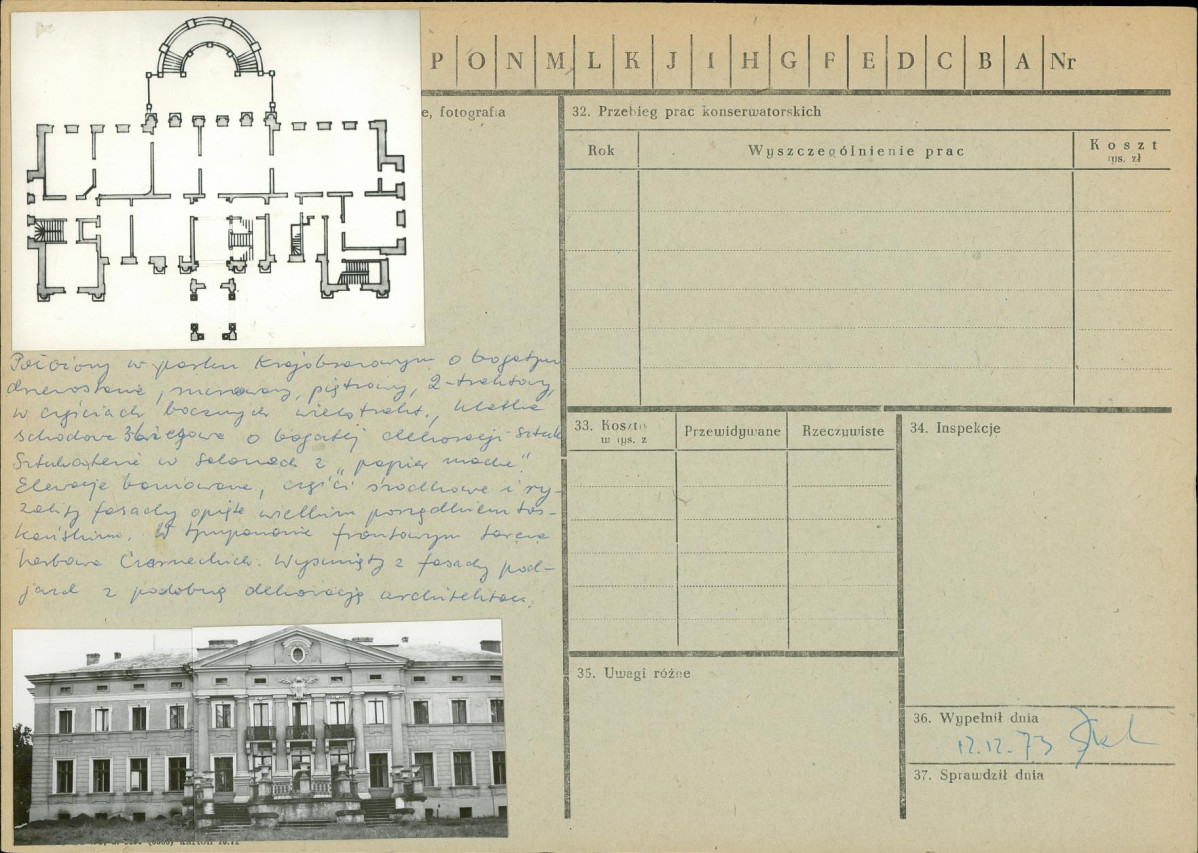 P O N M L K J I H G F E D C B A Nr
e, fotografia
32. Przebieg prac konserwatorskich
Rok
Wyszczególnienie prac
Koszt
tys. zł
Położony w parku krajobrazowym o bogatym
drzewostanie, murowany, piętrowy, 2-traktowy,
w częściach bocznych wielotrakt., klatka
schodowa 3biegowa o bogatej dekoracji sztuk
Sztukaterie w salonach z „papier mache".
Elewacje boniowane, części środkowe i ry-
zality fasady opięte wielkim porządkiem tos-
kańskim. W tympanonie frontowym tarcza
herbowa Czarneckich. Wysunięty z fasady pod-
jazd z podobną dekoracją architekton.
33. Koszt
w tys. z
Przewidywane
Rzeczywiste
34. Inspekcje
35. Uwagi różne
36. Wypełnił dnia
12.12.73
37. Sprawdził dnia